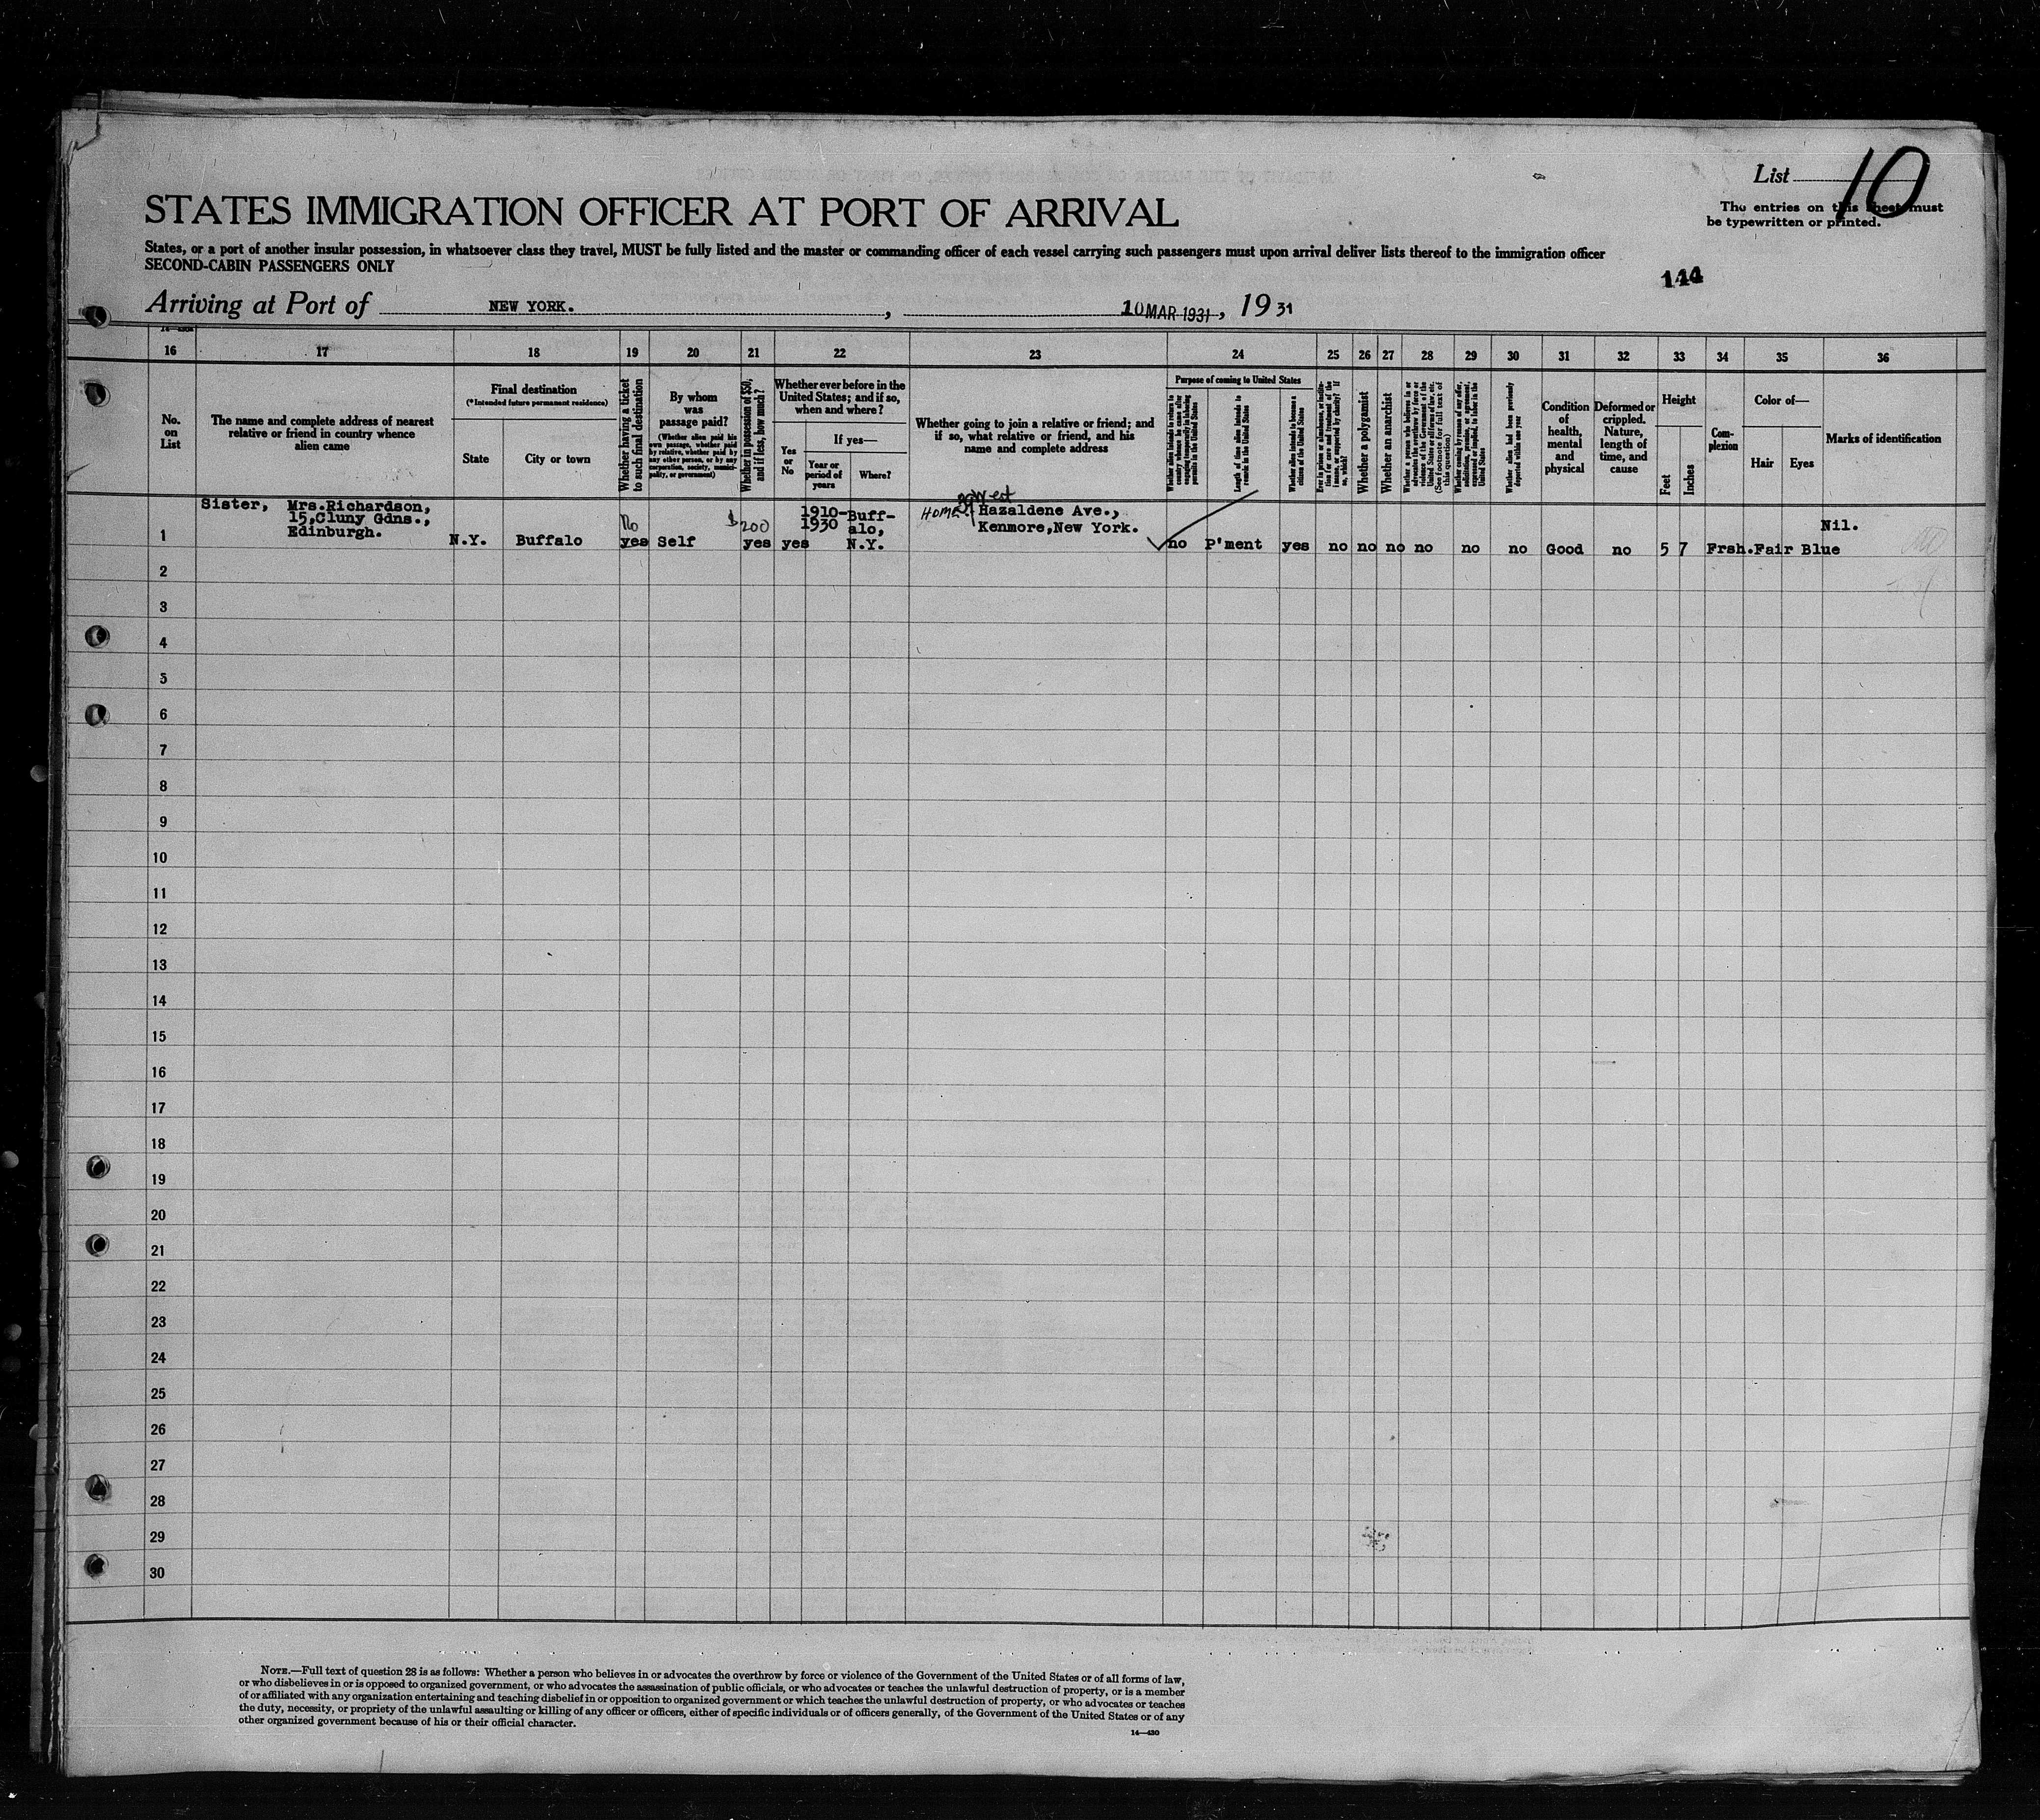 List 10
The entries on this sheet must
be typewritten or printed.
STATES IMMIGRATION OFFICER AT PORT OF ARRIVAL
States, or a port of another insular possession, in whatsoever class they travel, MUST be fully listed and the master or commanding officer of each vessel carrying such passengers must upon arrival deliver lists thereof to the immigration officer
SECOND-CABIN PASSENGERS ONLY
144
Arriving at Port of NEW YORK. , 10 MAR 1931, 19 31
16 17 18 19 20 21 22 23 24 25 26 27 28 29 30 31 32 33 34 35 36
No.
on
List
The name and complete address of nearest
relative or friend in country whence
alien came
Final destination
(*Intended future permanent residence)
State
City or town
Whether having a ticket
to such final destination
By whom
was
passage paid?
(Whether alien paid his
own passage, whether paid
by relative, whether paid by
any other person, or by any
corporation, society, munici-
pality, or government)
Whether in possession of $50,
and if less, how much?
Whether ever before in the
United States; and if so,
when and where?
Yes
or
No
If yes—
Year or
period of
years
Where?
Whether going to join a relative or friend; and
if so, what relative or friend, and his
name and complete address
Purpose of coming to United States
Whether alien intends to return to
country whence he came after
engaging temporarily in laboring
pursuits in the United States
Length of time alien intends to
remain in the United States
Whether alien intends to become a
citizen of the United States
Whether a polygamist
Whether an anarchist
Whether alien had been previously
deported within one year
Condition
of
health,
mental
and
physical
Deformed or
crippled.
Nature,
length of
time, and
cause
Height
Feet
Inches
Com-
plexion
Color of—
Hair
Eyes
Marks of identification
Sister, Mrs.Richardson,
15,Cluny Gdns.,
Edinburgh.
1 N.Y. Buffalo
No
yes Self
$200
yes yes
1910-
1930
Buff-
alo,
N.Y.
West
HOME. Hazaldene Ave.,
Kenmore,New York.
no P'ment yes no no no no no no Good no 5 7 Frsh. Fair Blue
Nil.
2
3
4
5
6
7
8
9
10
11
12
13
14
15
16
17
18
19
20
21
22
23
24
25
26
27
28
29
30
NOTE.—Full text of question 28 is as follows: Whether a person who believes in or advocates the overthrow by force or violence of the Government of the United States or of all forms of law,
or who disbelieves in or is opposed to organized government, or who advocates the assassination of public officials, or who advocates or teaches the unlawful destruction of property, or is a member
of or affiliated with any organization entertaining and teaching disbelief in or opposition to organized government or which teaches the unlawful destruction of property, or who advocates or teaches
the duty, necessity, or propriety of the unlawful assaulting or killing of any officer or officers, either of specific individuals or of officers generally, of the Government of the United States or of any
other organized government because of his or their official character.
14—430